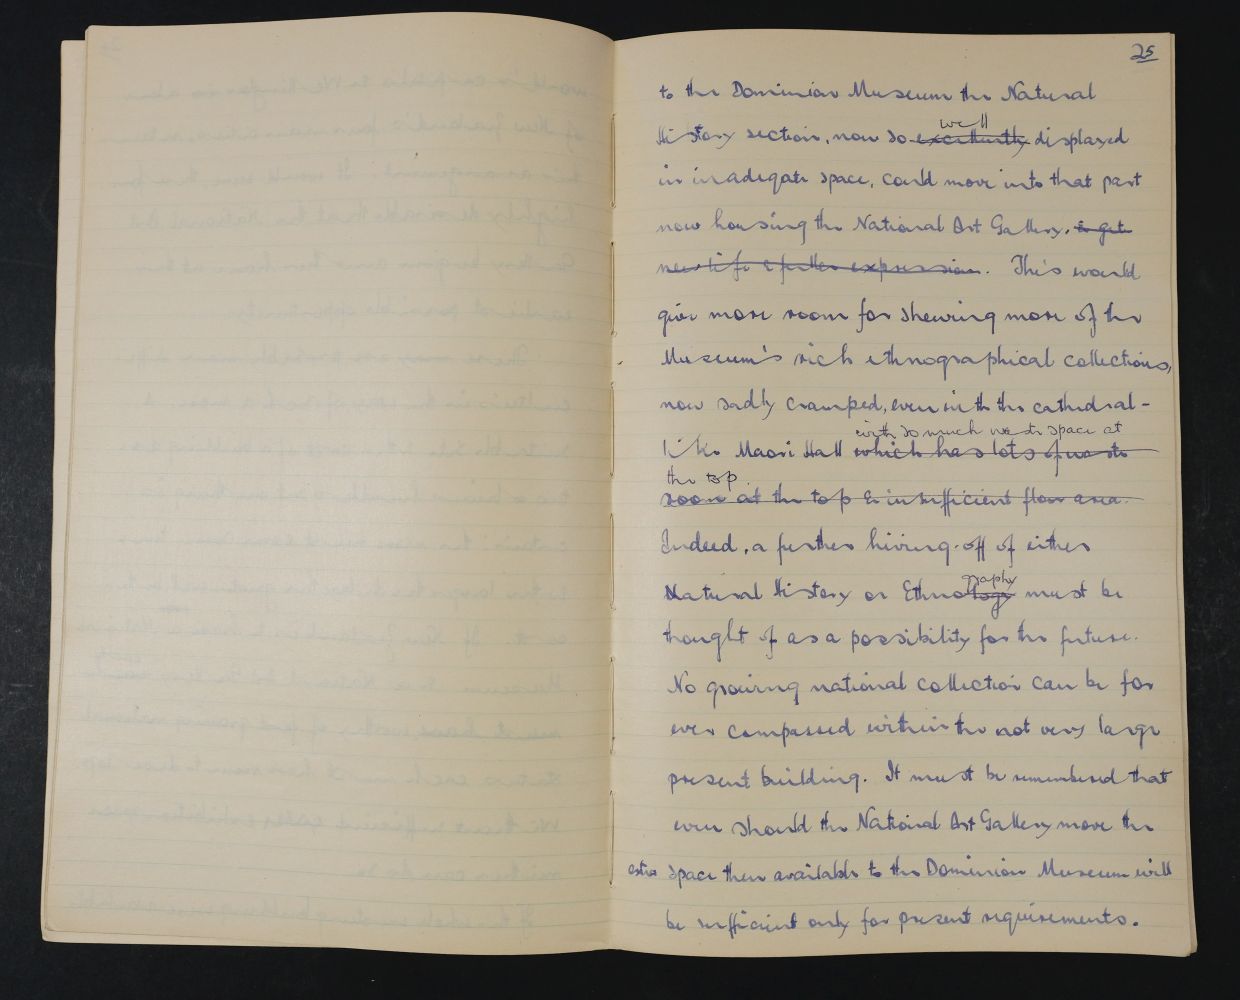 25
to the Dominion Museum the Natural
well
History section, now so excellently displayed
in inadeqate space, could move into that part
now housing the National Art Gallery. to get
new life & fuller expression. This would
give more room for shewing more of the
Museum's rich ethnographical collections,
now sadly cramped, even in the cathedral-
with so much waste space at
like Maori Hall which has lots of waste
the top.
room at the top & insufficient floor area.
Indeed, a further hiving-off of either
graphy
Natural History or Ethnology must be
thought of as a possibility for the future.
No growing national collection can be for
ever compassed within the not very large
present building. It must be remembered that
even should the National Art Gallery move the
extra space then available to the Dominion Museum will
be sufficient only for present requirements.